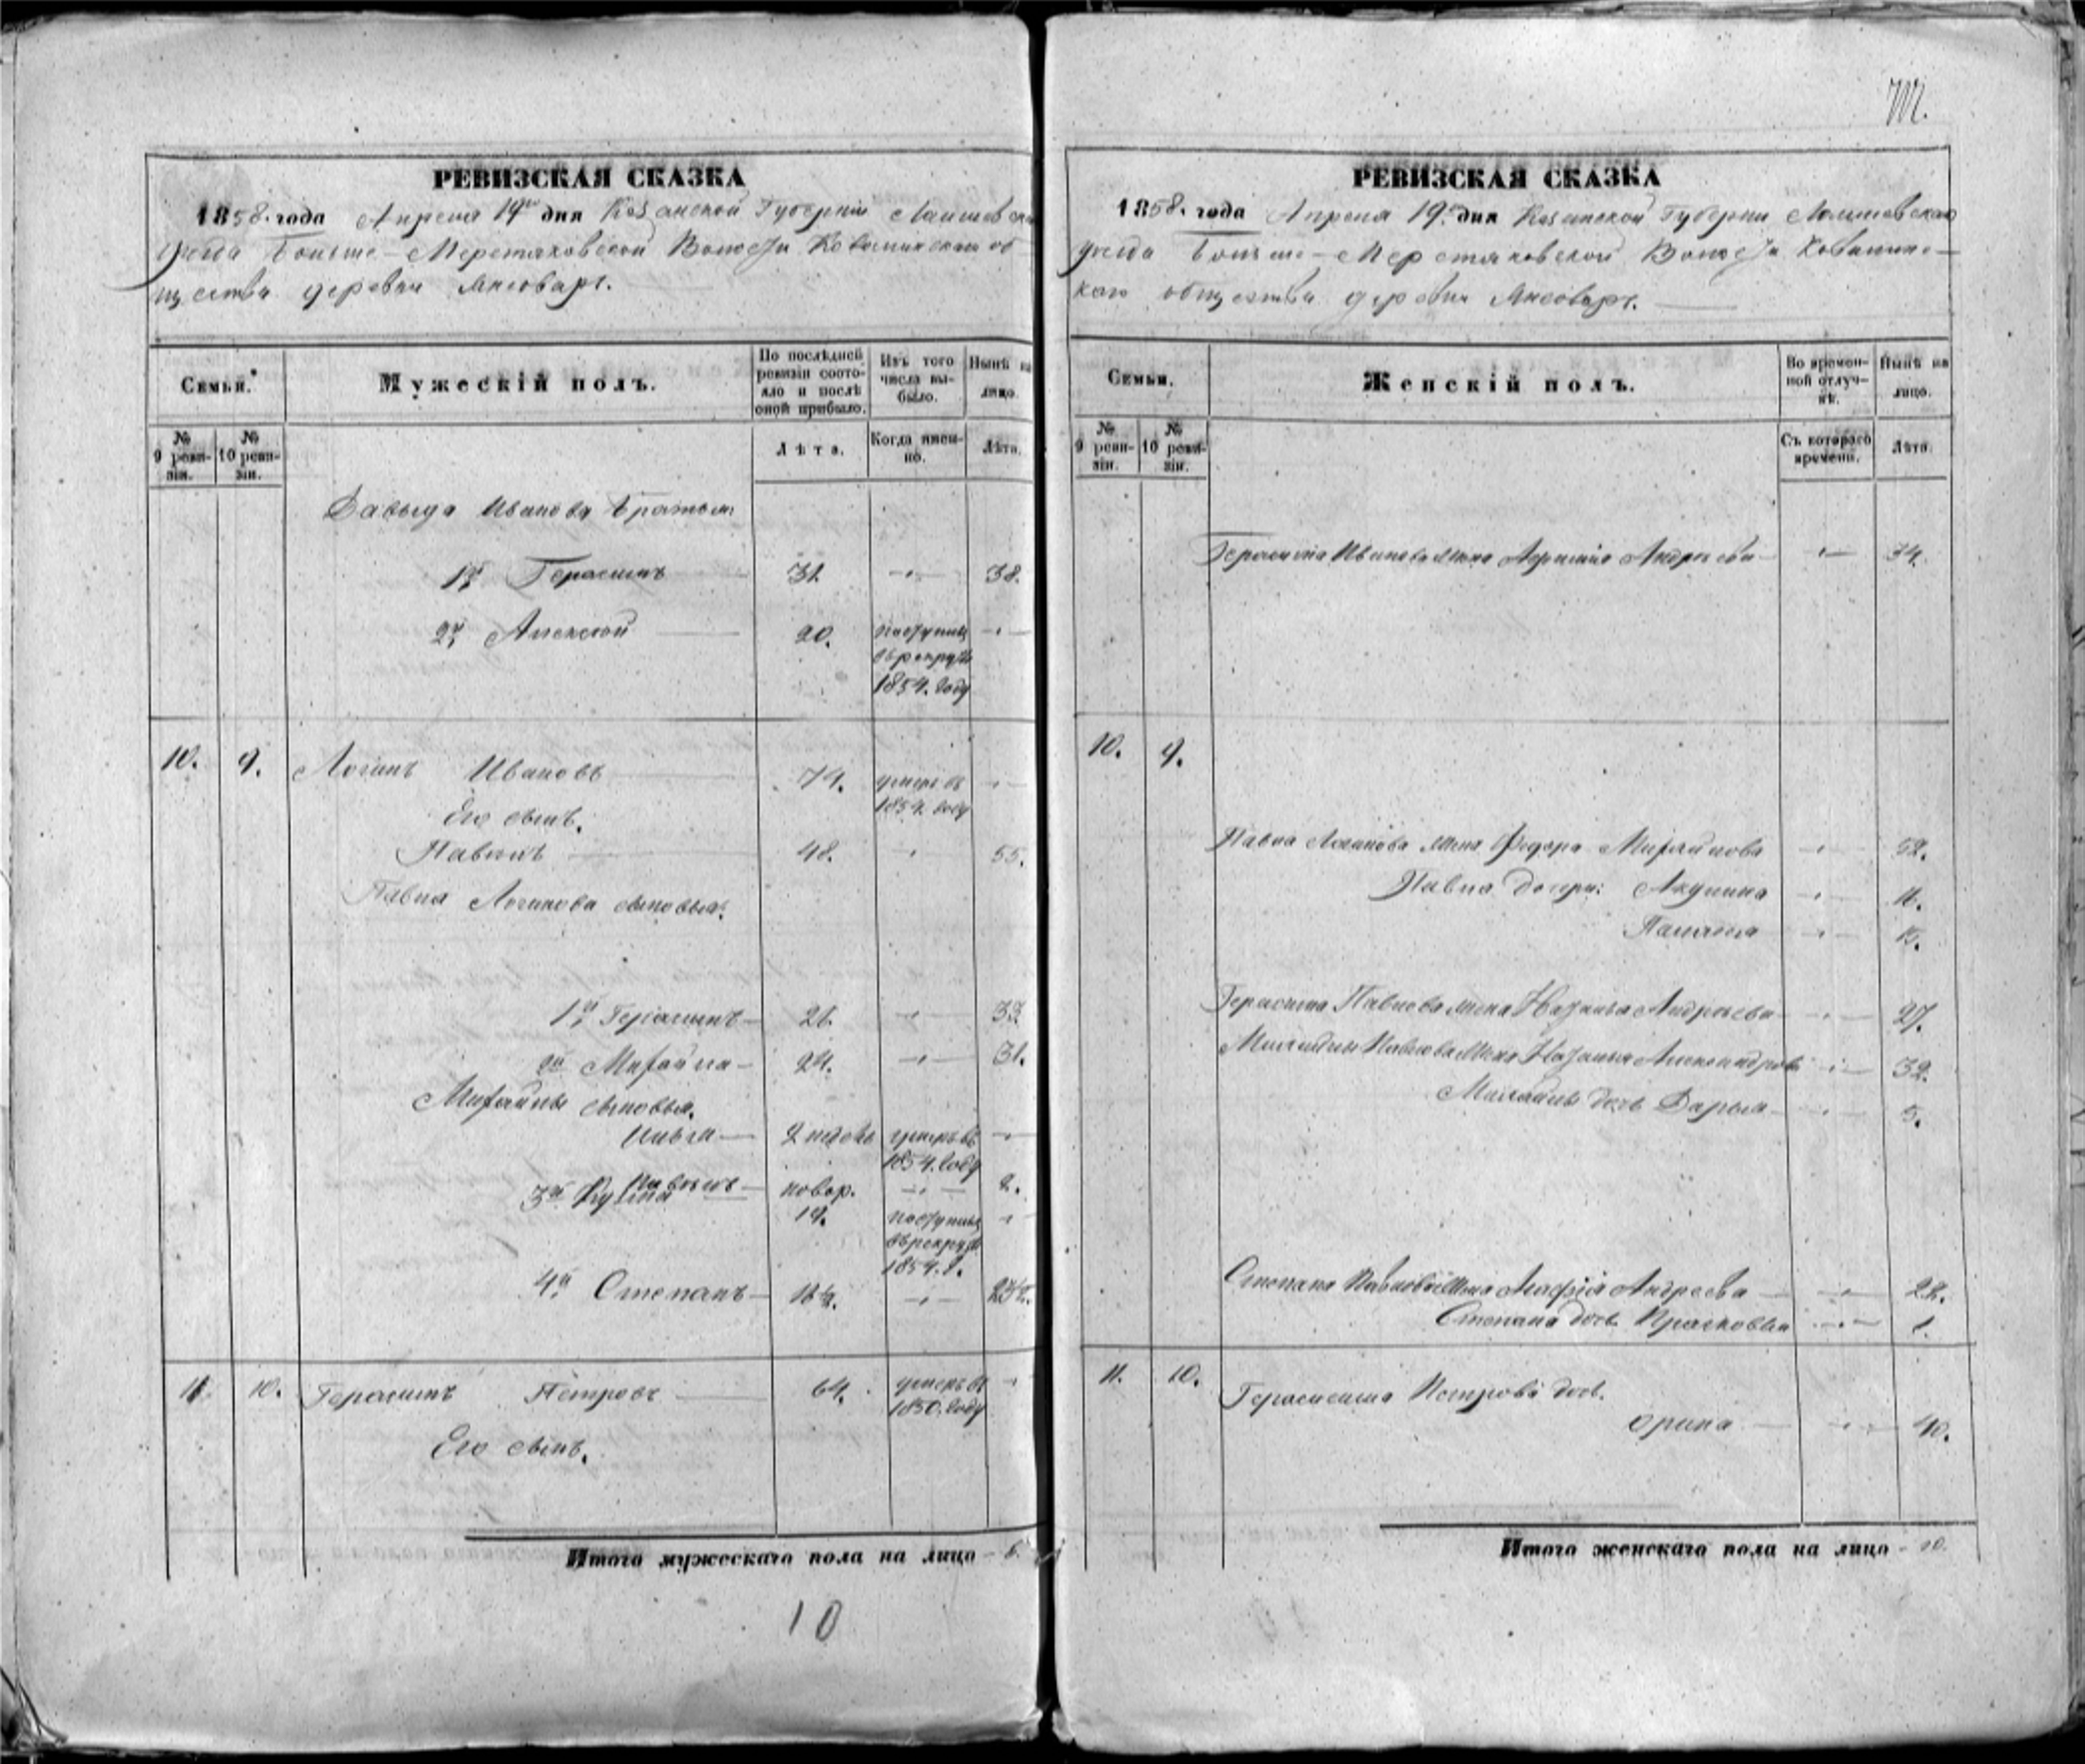 РЕВИЗСКАЯ СКАЗКА
1858. года Апреля 19го дня Казанской Губерніи Лаишевска
уезда Больше-Меретяковской Волости об-
щества деревни
Семьи.
Мужескій полъ.
По послѣдней ревизіи состояло и послѣ оной прибыло.
Изъ того числа выбыло.
Нынѣ на лицо.
№ 9 ревизіи.
№ 10 ревизіи.
Лѣта.
Когда именно.
Лѣта.
Давыда Иванова братья:
1й Герасимъ 31 38.
2й Алексей 20. поступилъ
въ рекруты
1854. году
10. 9. Логинъ Ивановъ 74. умеръ въ
1854. году
Его сынъ.
Павелъ 48. 55.
Павла Логинова сыновья:
1й Герасимъ 26. 33
2й Михайла 24. 31.
Михайлы сыновья.
Илья 2 недель умеръ въ
1854. году
Павелъ новор. 2.
3й Кузма 19. поступилъ
въ рекруты
1854. г.
4й Степанъ 16½. 23½.
11. 10. Герасимъ Петровъ 64. умеръ въ
1850. году
Его сынъ.
Итого мужескаго пола на лицо 6.
10
РЕВИЗСКАЯ СКАЗКА
1858. года Апреля 19го дня Казанской Губерніи Лаишевскаго
уезда Больше-Меретяковской Волости
каго общества деревни
Семьи.
Женскій полъ.
Во временной отлучкѣ.
Нынѣ на лицо.
№ 9 ревизіи.
№ 10 ревизіи.
Съ котораго времени.
Лѣта.
Герасима Иванова жена Андреева 34.
10. 9.
Павла Логинова жена Федора Михайлова 52.
Павла дочери: Акулина 11.
15.
Герасима Павлова жена Наталья Андреева 27.
Михайлы Павлова жена Наталья Александрова 32.
Михайлы дочь Дарья 5.
Степана Павлова жена Андреева 22.
Степана дочь Прасковья 1.
11. 10. Герасима Петрова дочь.
Орина 40.
Итого женскаго пола на лицо 10.